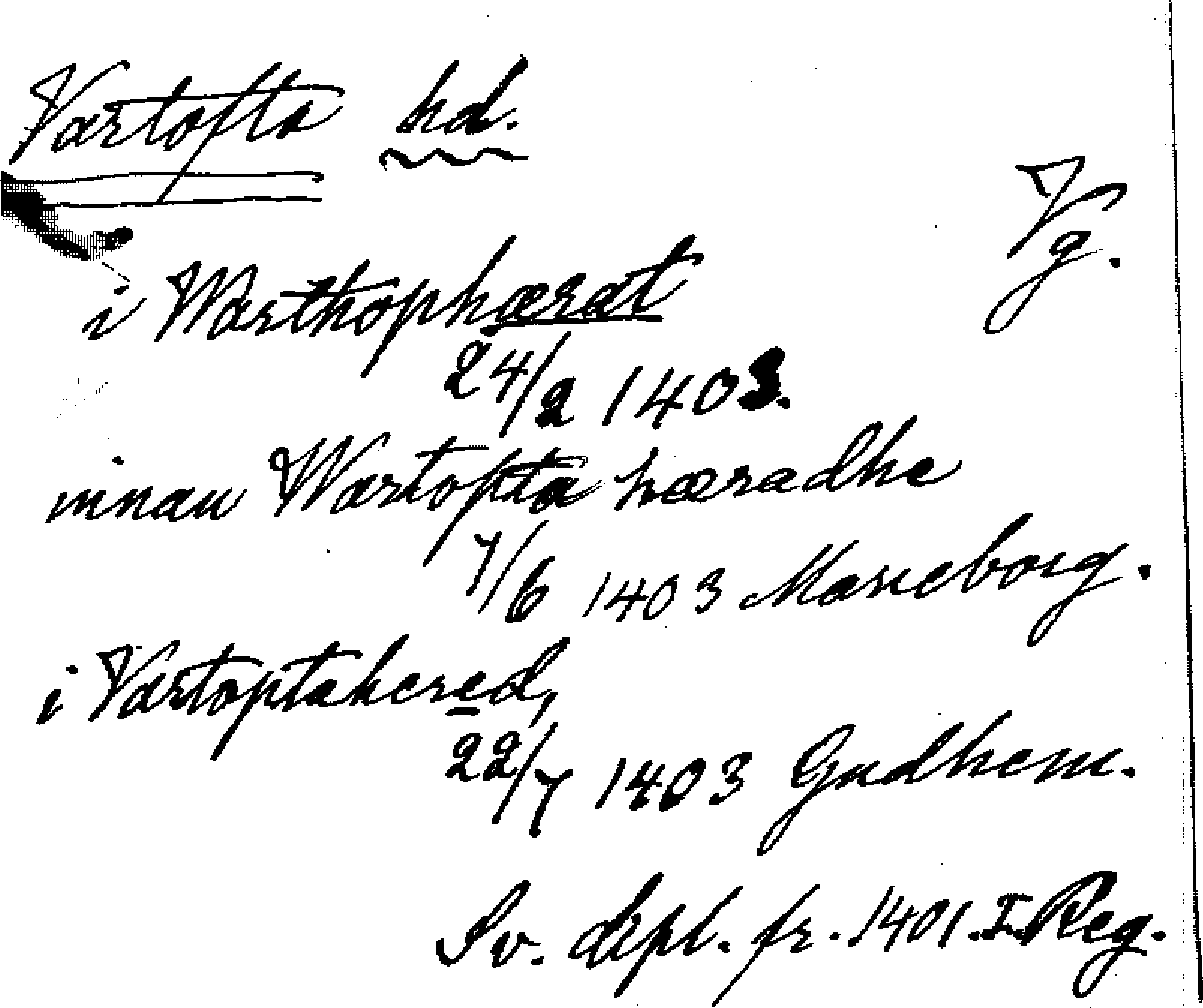 Vartofta hd.
Vg.
i Warthophærat
24/2 1403.
innan Wartopta hæradhe
7/6 1403 Marieborg.
i Vartoptahered,
22/7 1403 Gudhem.
Sv. dipl. fr. 1401. I. Reg.